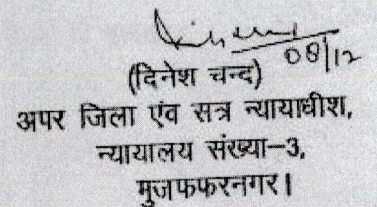 08/12
(दिनेश चन्द)
अपर जिला एंव सत्र न्यायाधीश,
न्यायालय संख्या-3,
मुजफफरनगर।